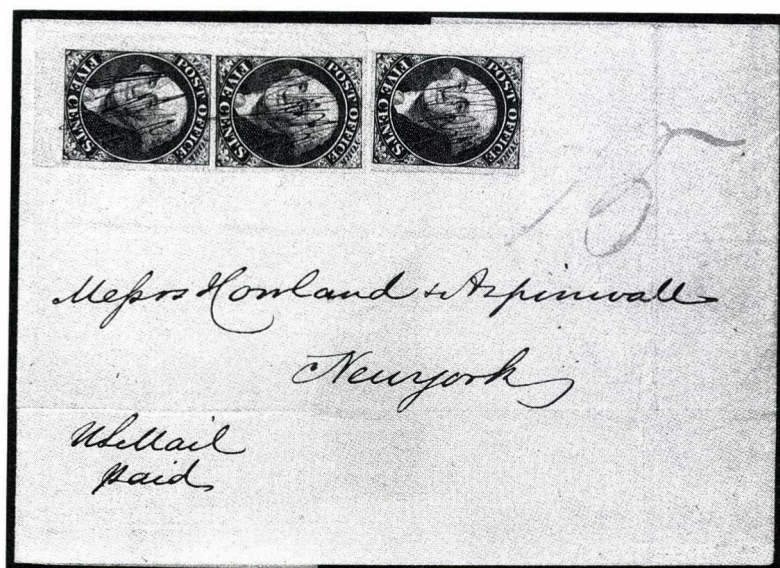 POST OFFICE FIVE CENTS
POST OFFICE FIVE CENTS
POST OFFICE FIVE CENTS
15
Messrs Howland & Aspinwall
New york
US Mail
paid